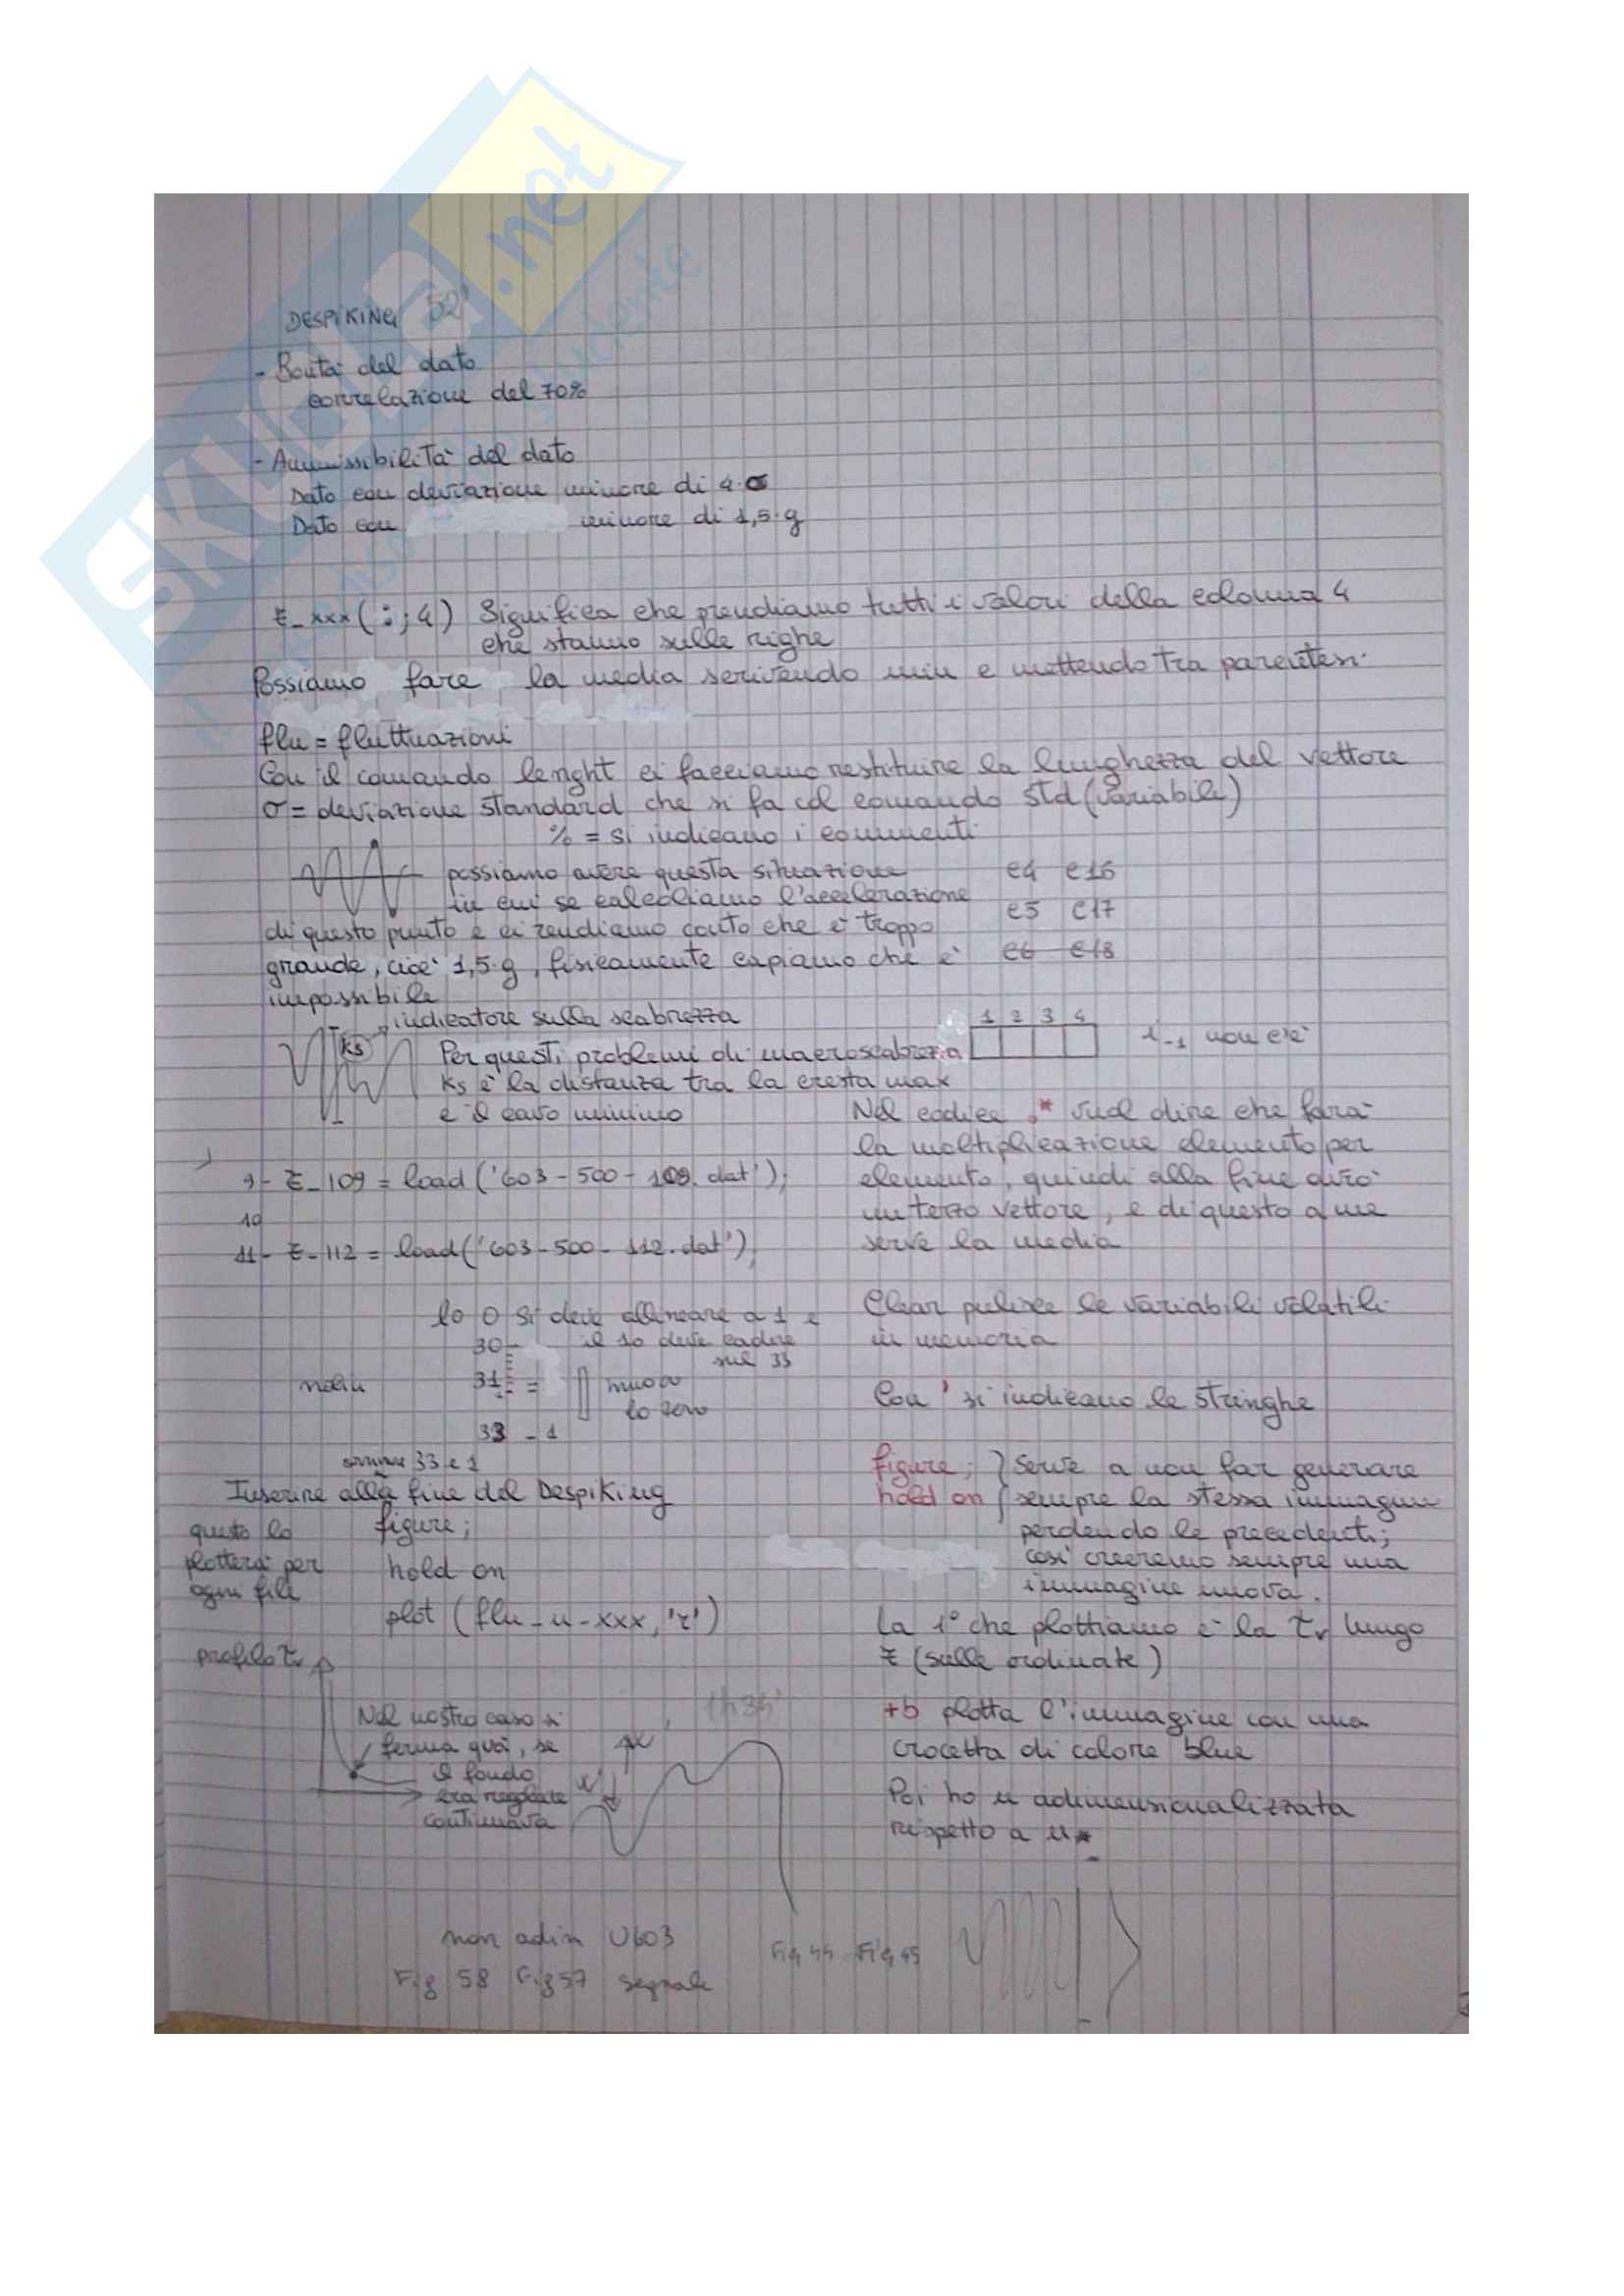 SKUOLA.net
DESPIKING 52'
- Bontà del dato
correlazione del 70%
- Ammissibilità del dato
Dato con deviazione minore di 4·σ
Dato con minore di 1,5·g
z_xxx(:;4) Significa che prendiamo tutti i valori della colonna 4
che stanno sulle righe
Possiamo fare la media scrivendo e mettendo tra parentesi
flu = fluttuazioni
Con il comando lenght ci facciamo restituire la lunghezza del vettore
σ = deviazione standard che si fa col comando std(variabile)
% = si indicano i commenti
possiamo avere questa situazione
in cui se calcoliamo l'accelerazione
di questo punto e ci rendiamo conto che è troppo
grande, cioè 1,5·g, fisicamente capiamo che è
impossibile
e4 e16
e5 e17
e6 e18
indicatore sulla scabrezza
ks
Per questi problemi di macroscabrezza
ks è la distanza tra la cresta max
e il cavo minimo
1 2 3 4
i-1 non c'è
9- z_109 = load('603-500-109.dat');
10
11- z_112 = load('603-500-112.dat');
lo 0 si deve allineare a 1 e
il 10 deve cadere
sul 33
30
31 =
nuovo
lo zero
33 - 1
33 e 1
Inserire alla fine del Despiking
questo lo
plotterà per
ogni file
figure;
hold on
plot (flu-u-xxx,'r')
profilo τv
Nel nostro caso si
ferma qua, se
il fondo
era regolare
continuava
1h35'
non adim U603
Fig 58 Fig 57 segnale
Nel codice .* vuol dire che farà
la moltiplicazione elemento per
elemento, quindi alla fine avrò
un terzo vettore, e di questo a me
serve la media
Clear pulisce le variabili volatili
in memoria
Con ' si indicano le stringhe
figure; } Serve a non far generare
hold on sempre la stessa immagine
perdendo le precedenti;
così creeremo sempre una
immagine nuova.
La 1° che plottiamo è la τv lungo
z (sulle ordinate)
+b plotta l'immagine con una
crocetta di colore blue
Poi ho u adimensionalizzata
rispetto a u*
Fig 44 Fig 45